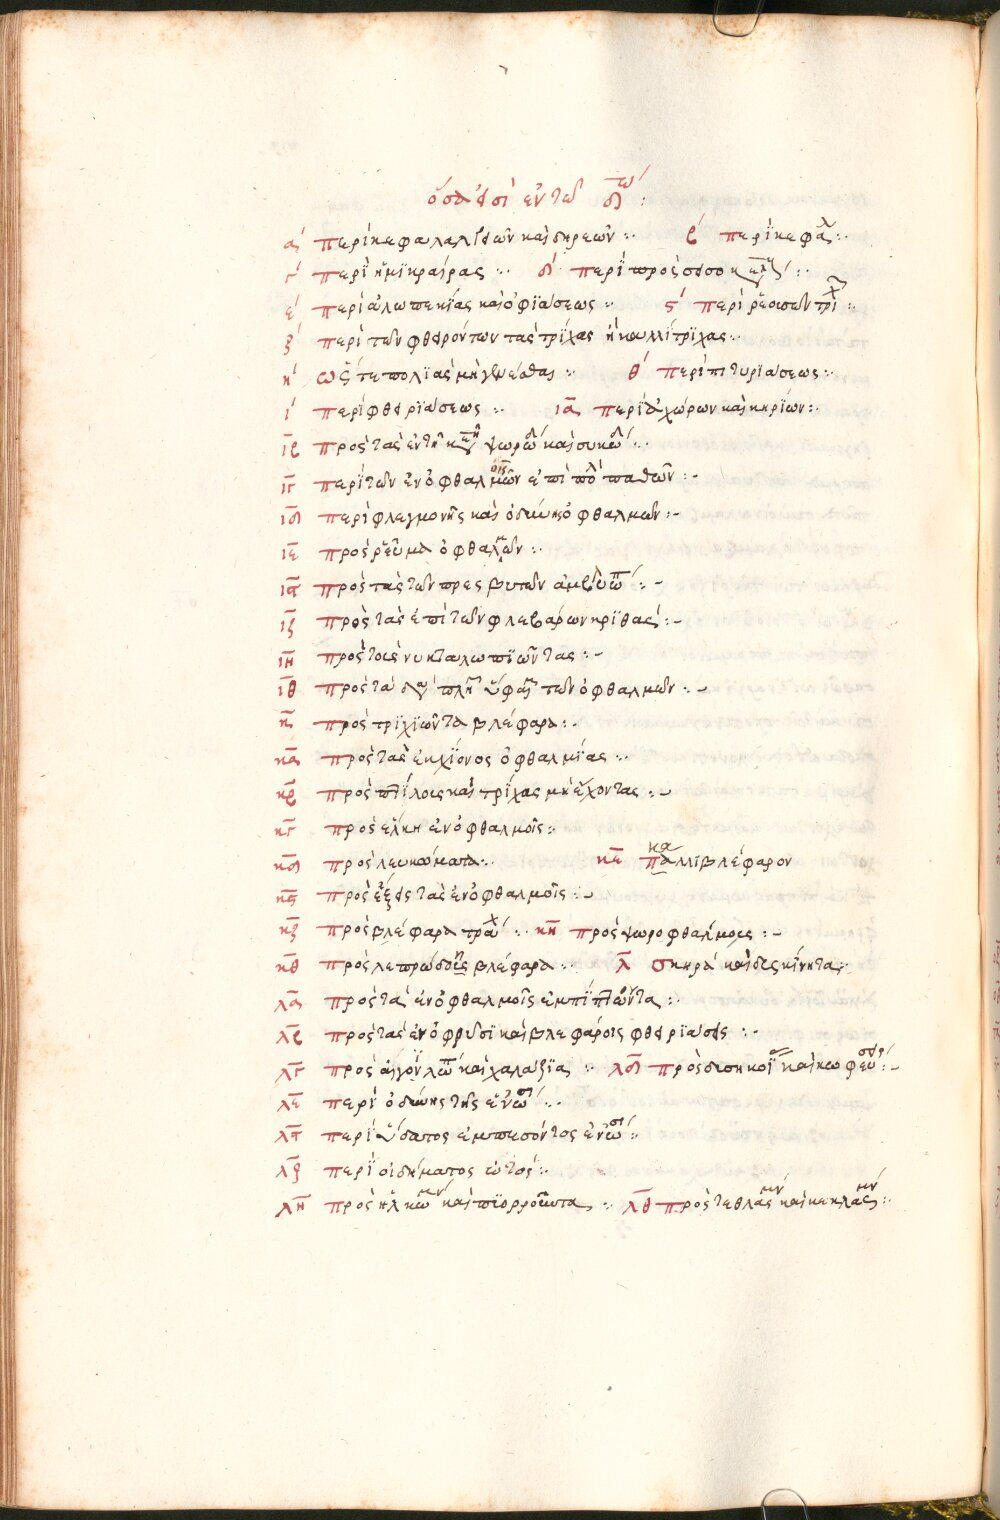 ὅσα εἰσὶ ἐν τῶ δ ω:
α περὶ κεφαλαλγειῶν καὶ σηρεῶν :· β περὶ κεφαλ :·
γ περὶ ἡμικραίρας :· δ περὶ προσ
ε περὶ ἀλωπεκίας καὶ ὀφιάσεως :· ϛ περὶ ῥεουσῶν τριχ :·
ζ περὶ τῶν φθειρόντων τὰς τρίχας ἢ καλλίτριχας :·
η ὥστε πολιὰς μὴ γενέσθαι :· θ περὶ πιτυριάσεως :·
ι περὶ φθειριάσεως :· ια περὶ ἀχώρων καὶ κηρίων :·
ιβ πρὸς τὰς ἐν τῆ κεφαλῆ ψωρ καὶ συκω :·
ιγ περὶ τῶν ἐν ὀφθαλμοῖς ἐπιπολ παθῶν :·
ιδ περὶ φλεγμονῆς καὶ ὀδύνης ὀφθαλμῶν :-
ιε πρὸς ῥεῦμα ὀφθαλμῶν :·
ιϛ πρὸς τὰς τῶν πρεσβυτῶν ἀμβλυωπ :-
ιζ πρὸς τὰς ἐπὶ τῶν φλεβάρων κριθάς :-
ιη πρὸς τοὺς νυκταλωπιῶντας :-
ιθ πρὸς τὰ διὰ πλη ὕφαι τῶν ὀφθαλμῶν :-
κ πρὸς τριχιῶντα βλέφαρα :·
κα πρὸς τὰς ἐκ χιόνος ὀφθαλμίας :·
κβ πρὸς πτίλους καὶ τρίχας μὴ ἔχοντας :-
κγ πρὸς ἕλκη ἐν ὀφθαλμοῖς :·
κδ πρὸς λευκώματα :· κε παλλιβλέφαρον κα
κϛ πρὸς ἕξεις τὰς ἐν ὀφθαλμοῖς :-
κζ πρὸς βλέφαρα τραχ :· κη πρὸς ψωροφθάλμους :-
κθ πρὸς λεπρώσδεις βλέφαρα :· λ σκηρὰ καὶ δυσκίνητα :·
λα πρὸς τὰ ἐν ὀφθαλμοῖς ἐμπίπτοντα :·
λβ πρὸς τὰς ἐν ὀφρύσι καὶ βλεφάροις φθειριάσεις :-
λγ πρὸς αἰγόνλωπ καὶ χαλαζίας :· λδ πρὸς δυσηκοΐ καὶ κωφεύσει :-
λε περὶ ὀδύνης τῆς ἐν ὠσί :·
λϛ περὶ ὕδατος ἐμπεσόντος ἐν ὠσί :·
λζ περὶ οἰδήματος ὠτός :·
λη πρὸς ἡλκωμν καὶ πυορροοῦντα :· λθ πρὸς τεθλασμν καὶ κεκλασμν :·